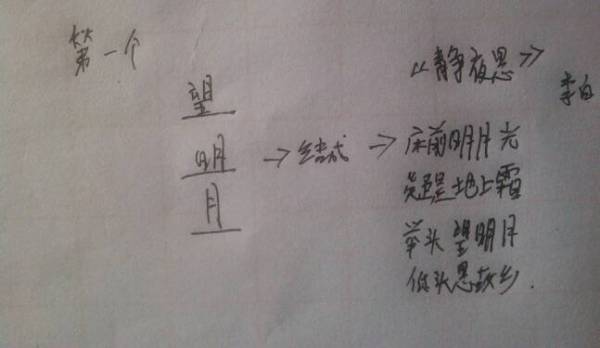 第一个
望
明
月
→结成→
《静夜思》
李白
床前明月光
疑是地上霜
举头望明月
低头思故乡.